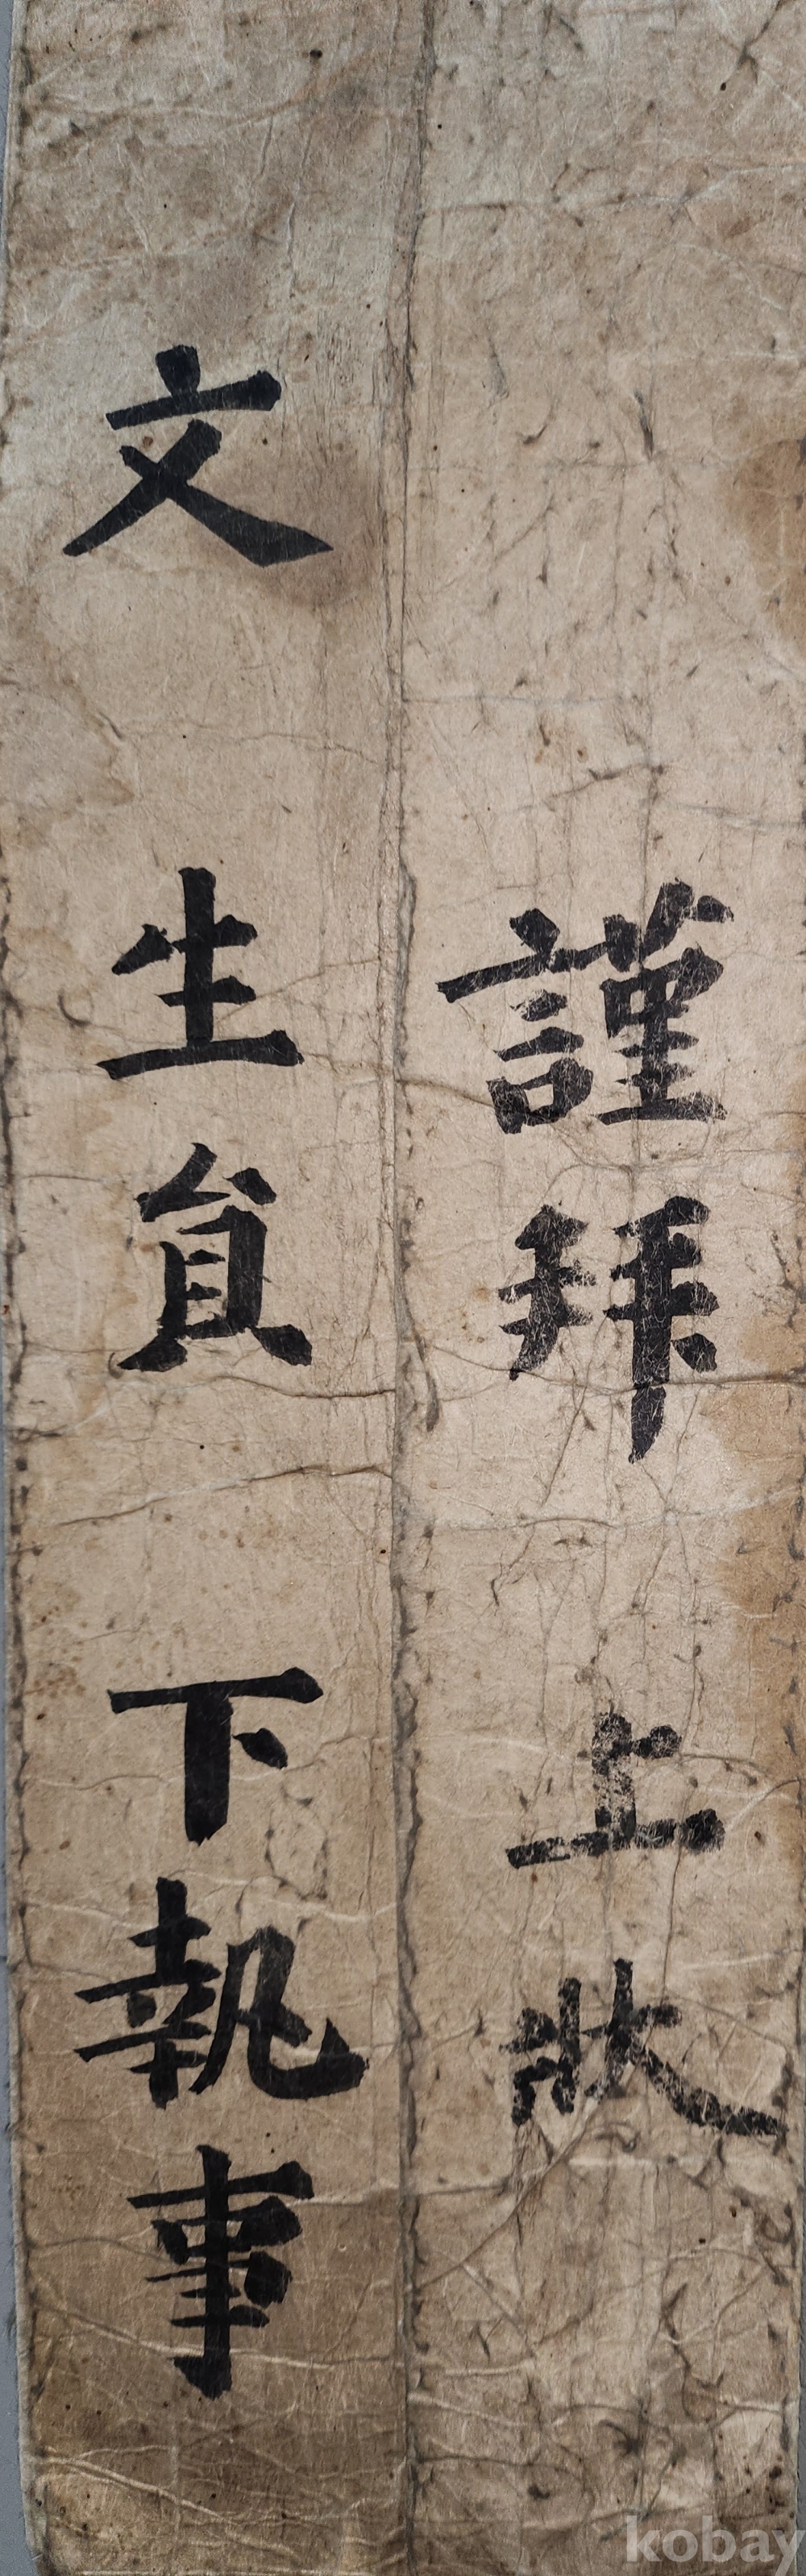 謹拜上狀
文生員下執事
kobay